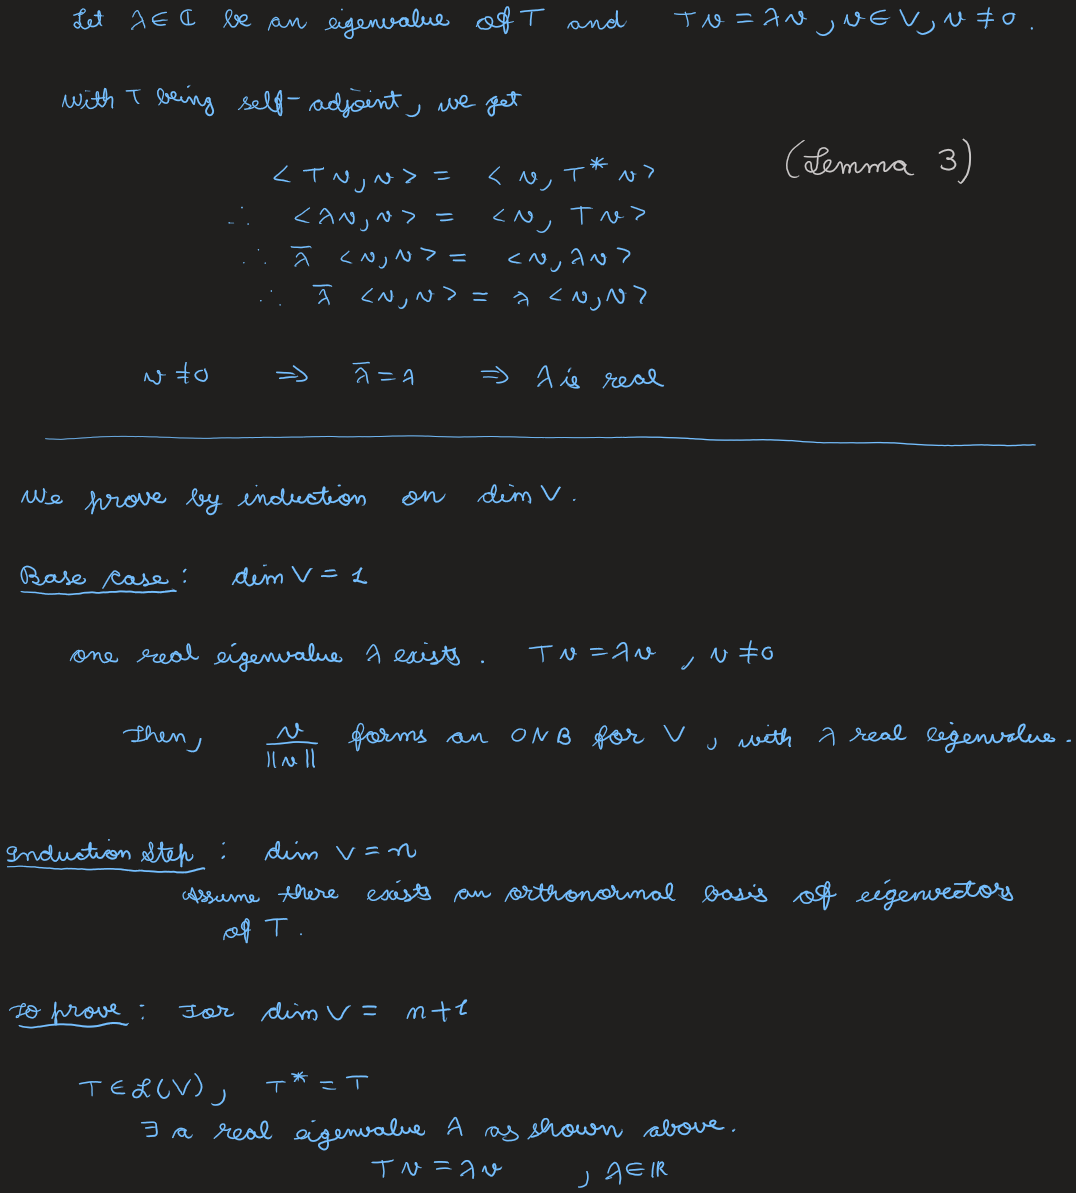 Let λ ∈ ℂ be an eigenvalue of T and Tv = λv, v ∈ V, v ≠ 0.
with T being self-adjoint, we get
<Tv, v> = <v, T* v> (Lemma 3)
∴ <λv, v> = <v, Tv>
∴ λ̄ <v, v> = <v, λv>
∴ λ̄ <v, v> = λ <v, v>
v ≠ 0 ⇒ λ̄ = λ ⇒ λ is real
We prove by induction on dim V.
Base case: dim V = 1
one real eigenvalue λ exists. Tv = λv, v ≠ 0
Then, v/||v|| forms an ONB for V, with λ real eigenvalue.
Induction Step: dim V = n
Assume there exists an orthonormal basis of eigenvectors
of T.
To prove: For dim V = n+1
T ∈ ℒ(V), T* = T
∃ a real eigenvalue λ as shown above.
Tv = λv, λ ∈ ℝ